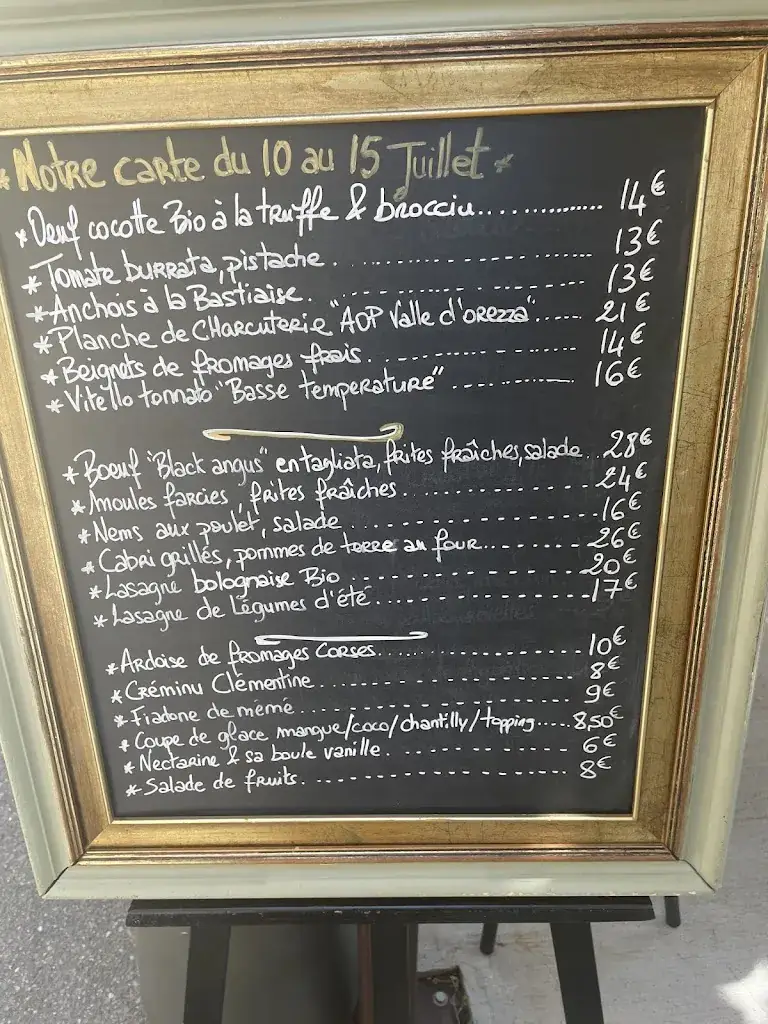 *Notre carte du 10 au 15 Juillet*
*Oeuf cocotte Bio à la truffe & brocciu............... 14€
*Tomate burrata, pistache ................ 13€
*Anchois à la Bastiaise. ................ 13€
*Planche de Charcuterie "AOP Valle d'orezza"...... 21€
*Beignets de fromages frais. ............. 14€
*Vitello tonnato "Basse temperature" ............ 16€
*Boeuf "Black angus" en tagliata, frites fraîches, salade.. 28€
*Moules farcies, frites fraîches................ 24€
*Nems aux poulet, salade ................ 16€
*Cabri grillés, pommes de terre au four......... 26€
*Lasagne bolognaise Bio ................ 20€
*Lasagne de Légumes d'été................ 17€
*Ardoise de fromages Corses................ 10€
*Créminu Clémentine................ 8€
*Fiadone de mémé ................ 9€
*Coupe de glace mangue/coco/chantilly/topping..... 8,50€
*Nectarine & sa boule vanille. ............ 6€
*Salade de fruits. ................ 8€